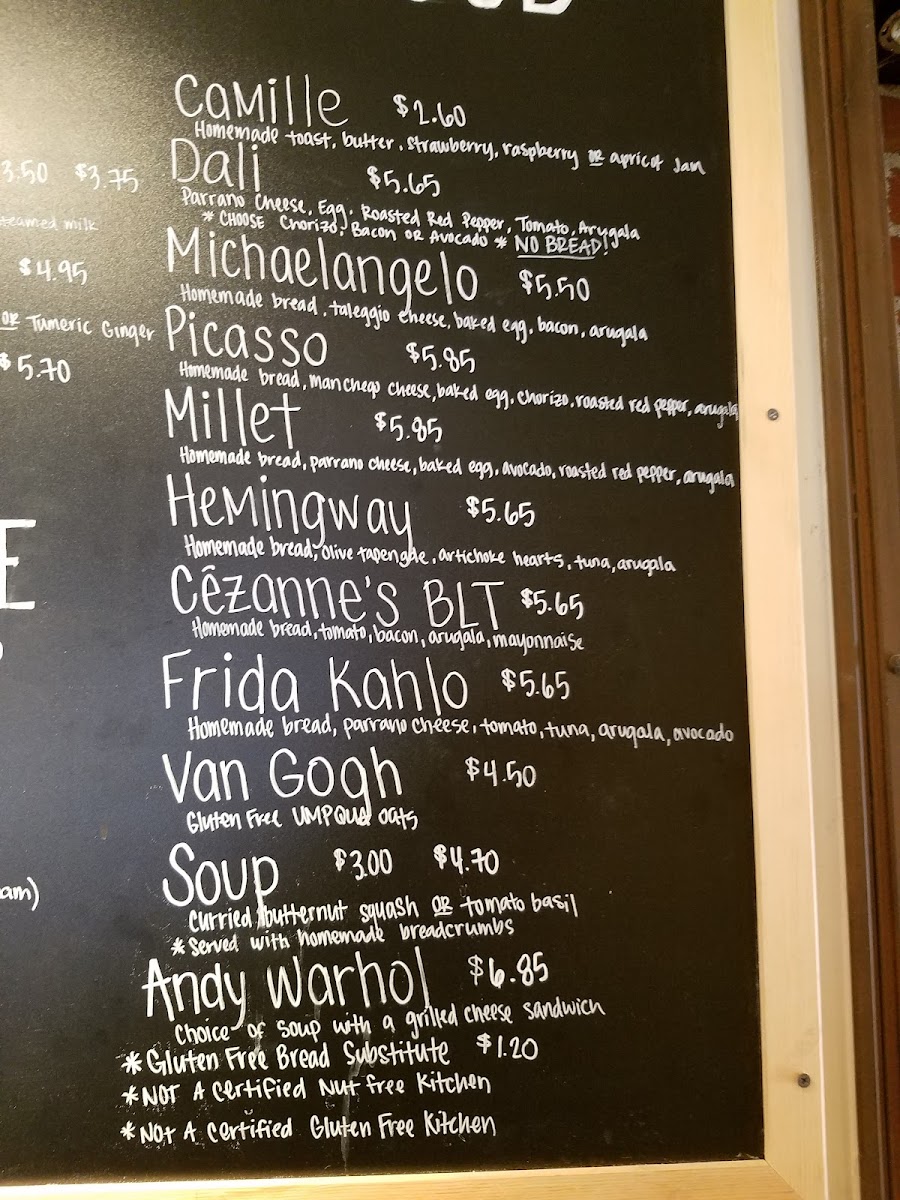 3.50 $3.75
steamed milk
$4.95
OR Tumeric Ginger
$5.70
E
am)
Camille $2.60
Homemade toast, butter, strawberry, raspberry OR apricot Jam
Dali $5.65
Parrano Cheese, Egg, Roasted Red Pepper, Tomato, Arugala
* CHOOSE Chorizo, Bacon OR Avocado * NO BREAD!
Michaelangelo $5.50
Homemade bread, taleggio cheese, baked egg, bacon, arugala
Picasso $5.85
Homemade bread, manchego cheese, baked egg, chorizo, roasted red pepper, arugala
Millet $5.85
Homemade bread, parrano cheese, baked egg, avocado, roasted red pepper, arugala
Hemingway $5.65
Homemade bread, olive tapengde, artichoke hearts, tuna, arugala
Cêzanne's BLT $5.65
Homemade bread, tomato, bacon, arugala, mayonnaise
Frida Kahlo $5.65
Homemade bread, parrano cheese, tomato, tuna, arugala, avocado
Van Gogh $4.50
Gluten Free UMPQUA oats
Soup $3.00 $4.70
Curried butternut squash OR tomato basil
* Served with homemade breadcrumbs
Andy Warhol $6.85
Choice of soup with a grilled cheese sandwich
* Gluten Free Bread Substitute $1.20
* NOT A Certified Nut free Kitchen
* Not A Certified Gluten Free Kitchen